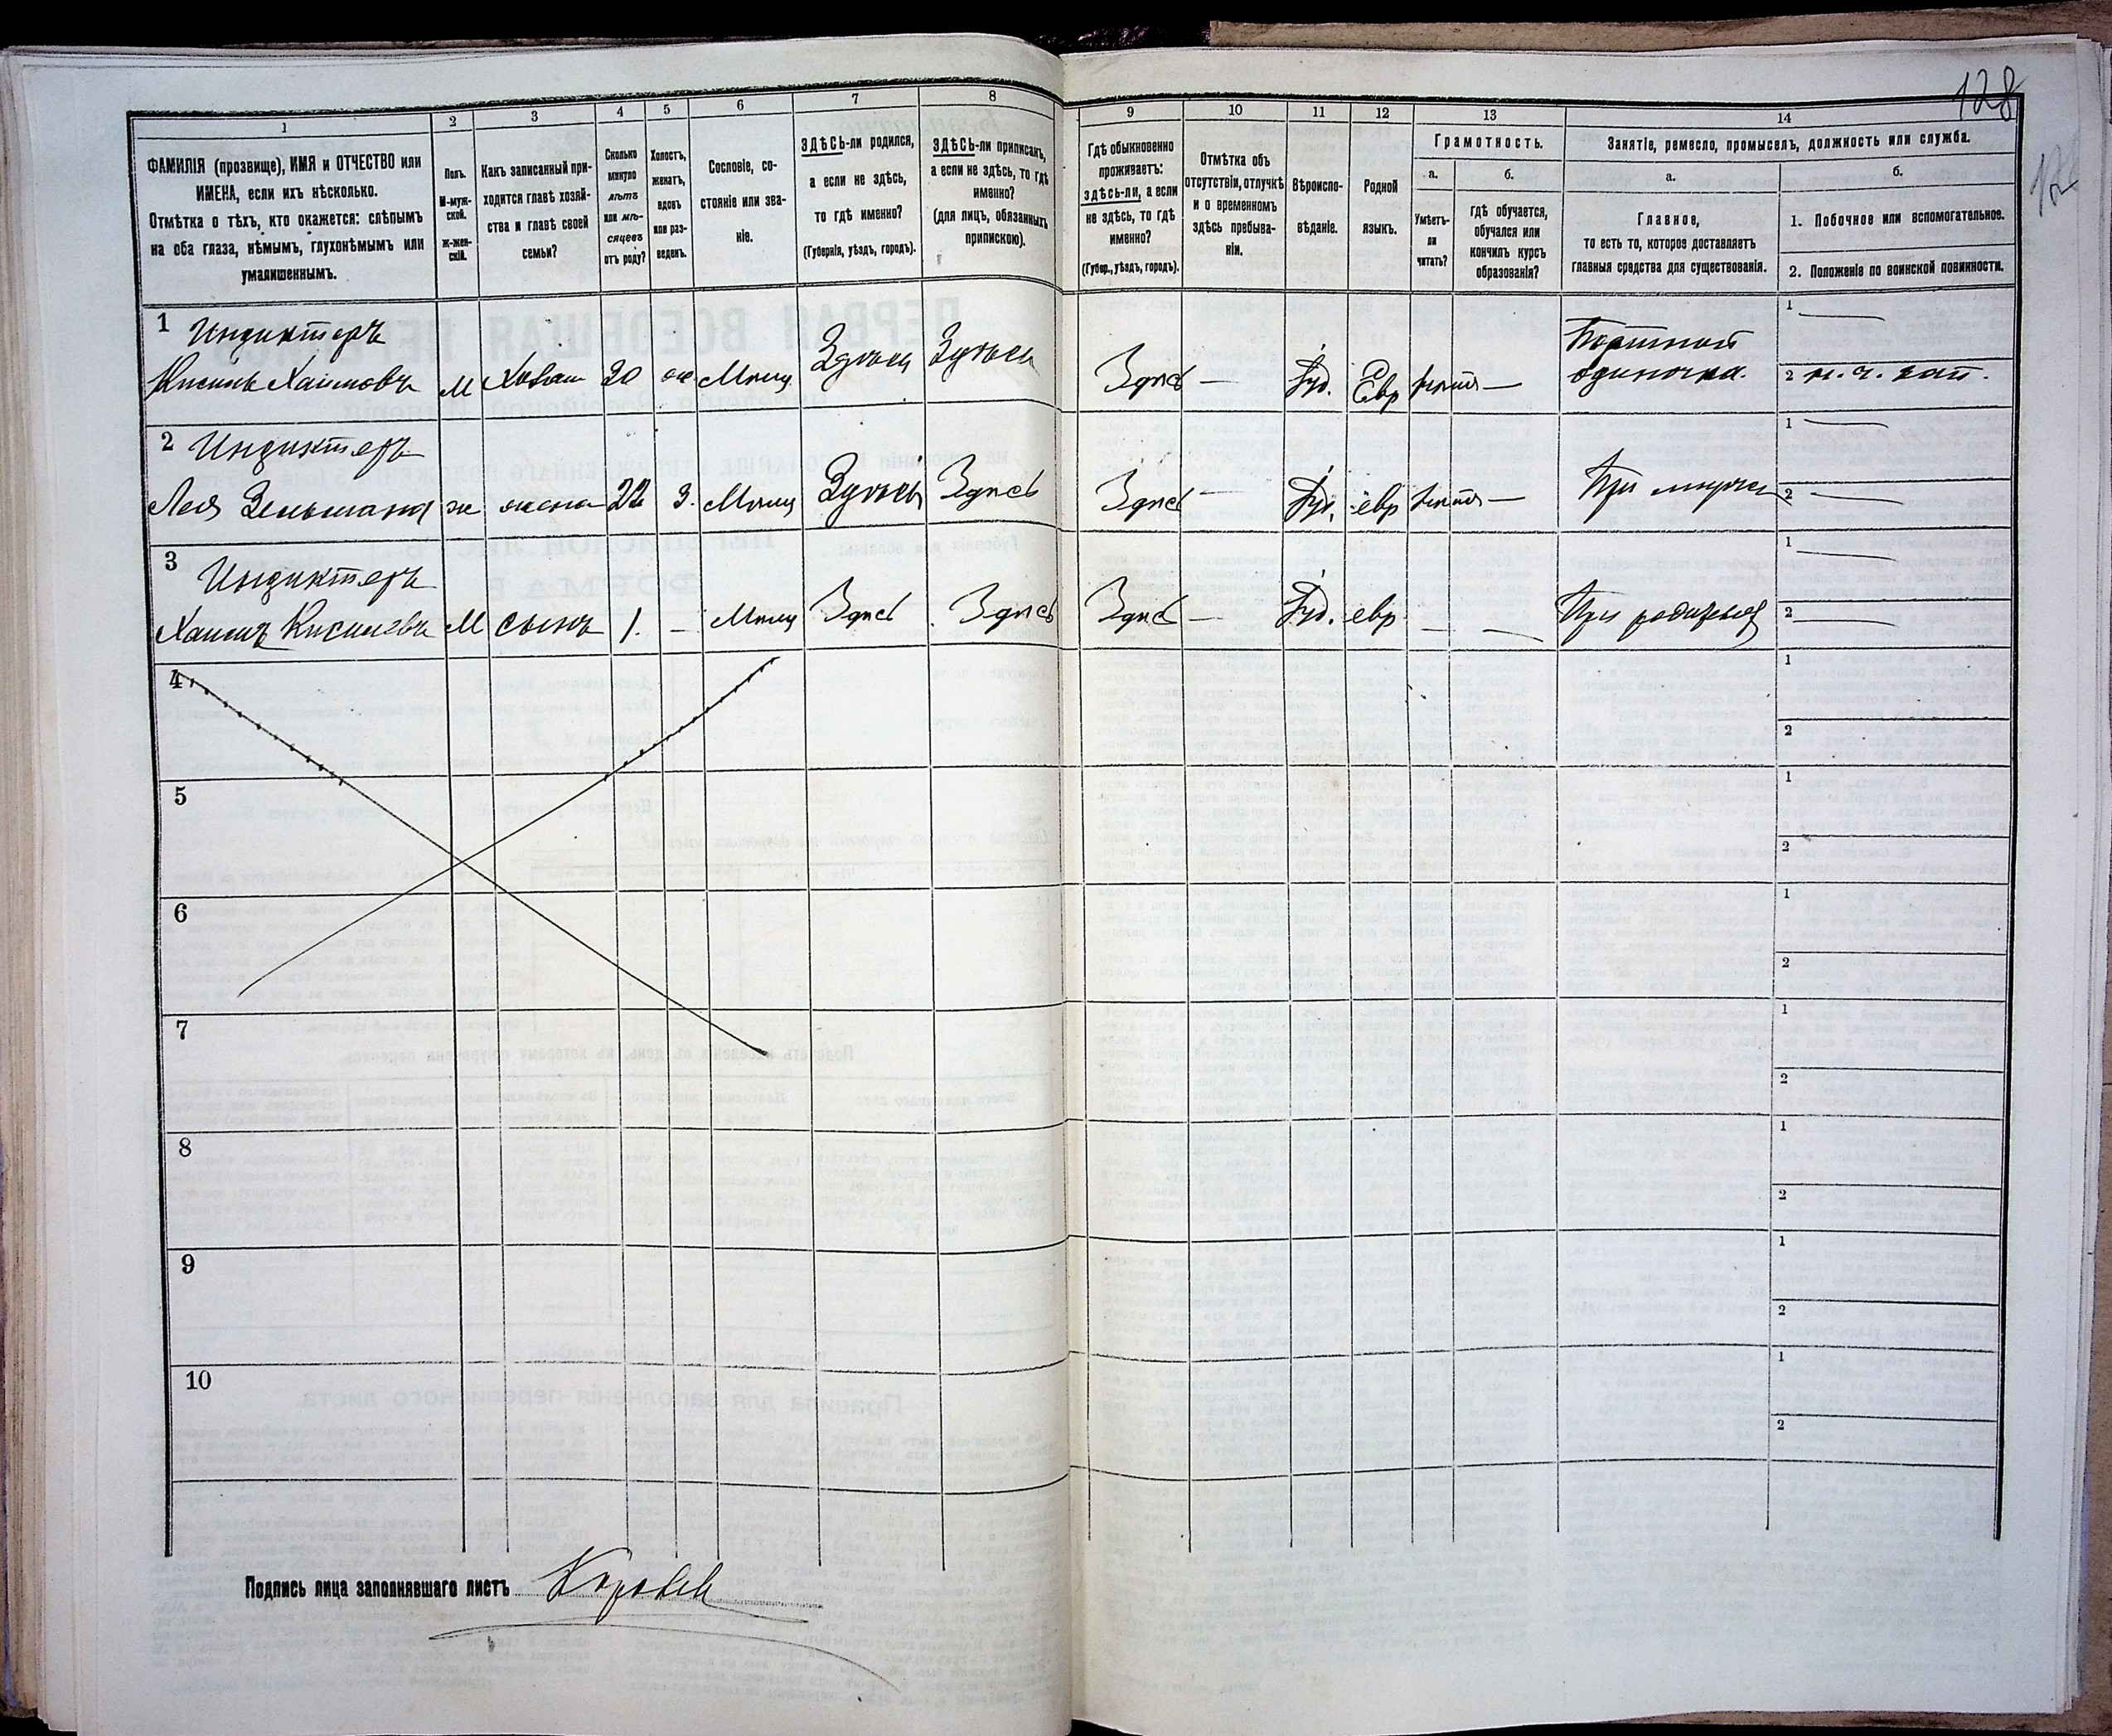 128
1
2
3
4
5
6
7
8
9
10
11
12
13
14
ФАМИЛІЯ (прозвище), ИМЯ и ОТЧЕСТВО или
ИМЕНА, если ихъ нѣсколько.
Отмѣтка о тѣхъ, кто окажется: слѣпымъ
на оба глаза, нѣмымъ, глухонѣмымъ или
умалишеннымъ.
Полъ.
М-муж-
ской.
Ж-жен-
скій.
Какъ записанный при-
ходится главѣ хозяй-
ства и главѣ своей
семьи?
Сколько
минуло
лѣтъ
или мѣ-
сяцевъ
отъ роду?
Холостъ,
женатъ,
вдовъ
или раз-
веденъ.
Сословіе, со-
стояніе или зва-
ніе.
ЗДѢСЬ-ли родился,
а если не здѣсь,
то гдѣ именно?
(Губернія, уѣздъ, городъ).
ЗДѢСЬ-ли приписанъ,
а если не здѣсь, то гдѣ
именно?
(для лицъ, обязанныхъ
припискою).
Гдѣ обыкновенно
проживаетъ:
здѣсь-ли, а если
не здѣсь, то гдѣ
именно?
(Губер., уѣздъ, городъ).
Отмѣтка объ
отсутствіи, отлучкѣ
и о временномъ
здѣсь пребыва-
ніи.
Вѣроиспо-
вѣданіе.
Родной
языкъ.
Грамотность.
а.
Умѣетъ-
ли
читать?
б.
Гдѣ обучается,
обучался или
кончилъ курсъ
образованія?
Занятіе, ремесло, промыселъ, должность или служба.
а.
Главное,
то есть то, которое доставляетъ
главныя средства для существованія.
б.
1. Побочное или вспомогательное.
2. Положеніе по воинской повинности.
1 Индиктеръ Портной 1
Кисиль Хаимовъ М Хозяин 20 ж Мѣщ Здѣсь Здѣсь Здѣсь — Іуд. Евр — одиночка. 2
2 Индиктеръ 1
Лея Зельмана ж жена 22 З. Мѣщ Здѣсь Здѣсь Здѣсь — Іуд. евр — При мужѣ 2
3 Индиктеръ 1
Хаимъ Кисилевъ М сынъ 1. — Мѣщ Здѣсь Здѣсь Здѣсь — Іуд. евр — — При 2
4 1
2
5 1
2
6 1
2
7 1
2
8 1
2
9 1
2
10 1
2
Подпись лица заполнявшаго листъ